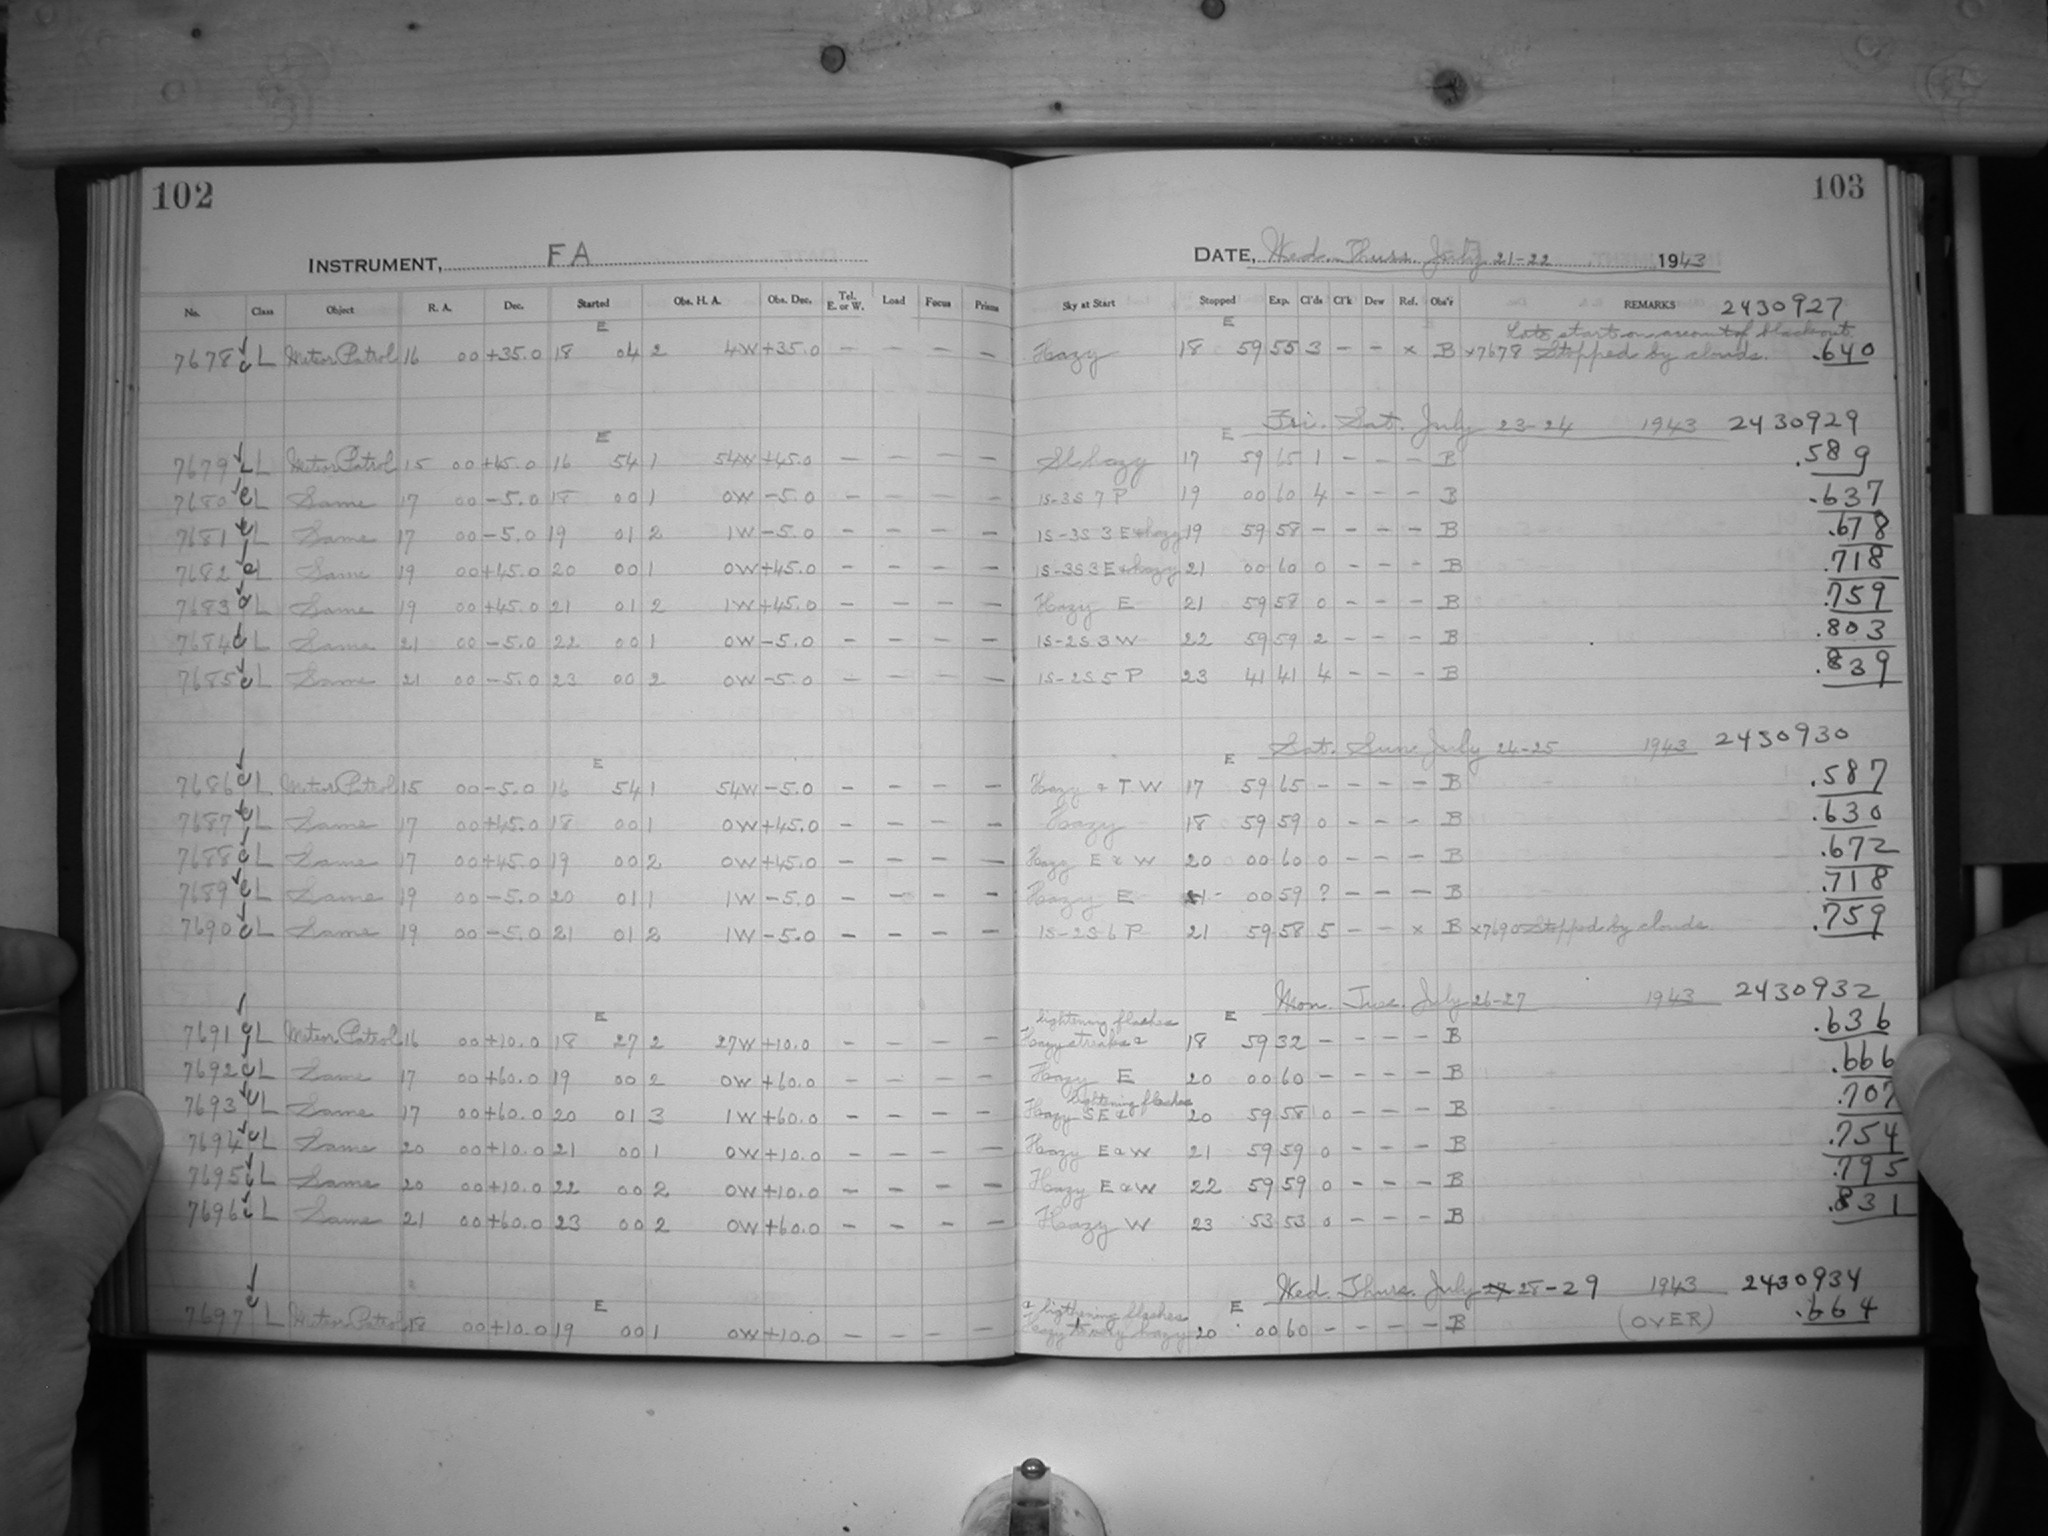 102
103
INSTRUMENT, FA
DATE, Wed. Thurs. July 21-22 1943
No. Class Object R. A. Dec. Started Obs. H. A. Obs. Dec. Tel. E. or W. Load Focus Prisms Sky at Start Stopped Exp. Cl'ds Cl'k Dew Ref. Obs'r REMARKS 2430927
E E Late start on account of blackout.
7678 L Meteor Patrol 16 00 +35.0 18 04 2 4W +35.0 – – – – Hazy 18 59 55 3 – – x B x7678 Stopped by clouds. .640
E E Fri. Sat. July 23-24 1943 2430929
7679 L Meteor Patrol 15 00 +45.0 16 54 1 54W +45.0 – – – – Sl. hazy 17 59 65 1 – – – B .589
7680 L Same 17 00 -5.0 18 00 1 0W -5.0 – – – – 1S-3S 7 P 19 00 60 4 – – – B .637
7681 L Same 17 00 -5.0 19 01 2 1W -5.0 – – – – 1S-3S 3 E & hazy 19 59 58 – – – – B .678
7682 L Same 19 00 +45.0 20 00 1 0W +45.0 – – – – 1S-3S 3 E & hazy 21 00 60 0 – – – B .718
7683 L Same 19 00 +45.0 21 01 2 1W +45.0 – – – – Hazy E 21 59 58 0 – – – B .759
7684 L Same 21 00 -5.0 22 00 1 0W -5.0 – – – – 1S-2S 3 W 22 59 59 2 – – – B .803
7685 L Same 21 00 -5.0 23 00 2 0W -5.0 – – – – 1S-2S 5 P 23 41 41 4 – – – B .839
E E Sat. Sun. July 24-25 1943 2430930
7686 L Meteor Patrol 15 00 -5.0 16 54 1 54W -5.0 – – – – Hazy & T W 17 59 65 – – – – B .587
7687 L Same 17 00 +45.0 18 00 1 0W +45.0 – – – – Hazy 18 59 59 0 – – – B .630
7688 L Same 17 00 +45.0 19 00 2 0W +45.0 – – – – Hazy E & W 20 00 60 0 – – – B .672
7689 L Same 19 00 -5.0 20 01 1 1W -5.0 – – – – Hazy E 21 00 59 ? – – – B .718
7690 L Same 19 00 -5.0 21 01 2 1W -5.0 – – – – 1S-2S 6 P 21 59 58 5 – – x B x7690 Stopped by clouds .759
E E Mon. Tues. July 26-27 1943 2430932
lightening flashes
7691 L Meteor Patrol 16 00 +10.0 18 27 2 27W +10.0 – – – – Hazy streaks & 18 59 32 – – – – B .636
7692 L Same 17 00 +60.0 19 00 2 0W +60.0 – – – – Hazy E 20 00 60 – – – – B .666
lightening flashes
7693 L Same 17 00 +60.0 20 01 3 1W +60.0 – – – – Hazy SE & 20 59 58 0 – – – B .707
7694 L Same 20 00 +10.0 21 00 1 0W +10.0 – – – – Hazy E & W 21 59 59 0 – – – B .754
7695 L Same 20 00 +10.0 22 00 2 0W +10.0 – – – – Hazy E & W 22 59 59 0 – – – B .795
7696 L Same 21 00 +60.0 23 00 2 0W +60.0 – – – – Hazy W 23 53 53 0 – – – B .831
E E Wed. Thurs. July 28-29 1943 2430934
& ligthening flashes
7697 L Meteor Patrol 18 00 +10.0 19 00 1 0W +10.0 – – – – Hazy to very hazy 20 00 60 – – – – B (OVER) .664